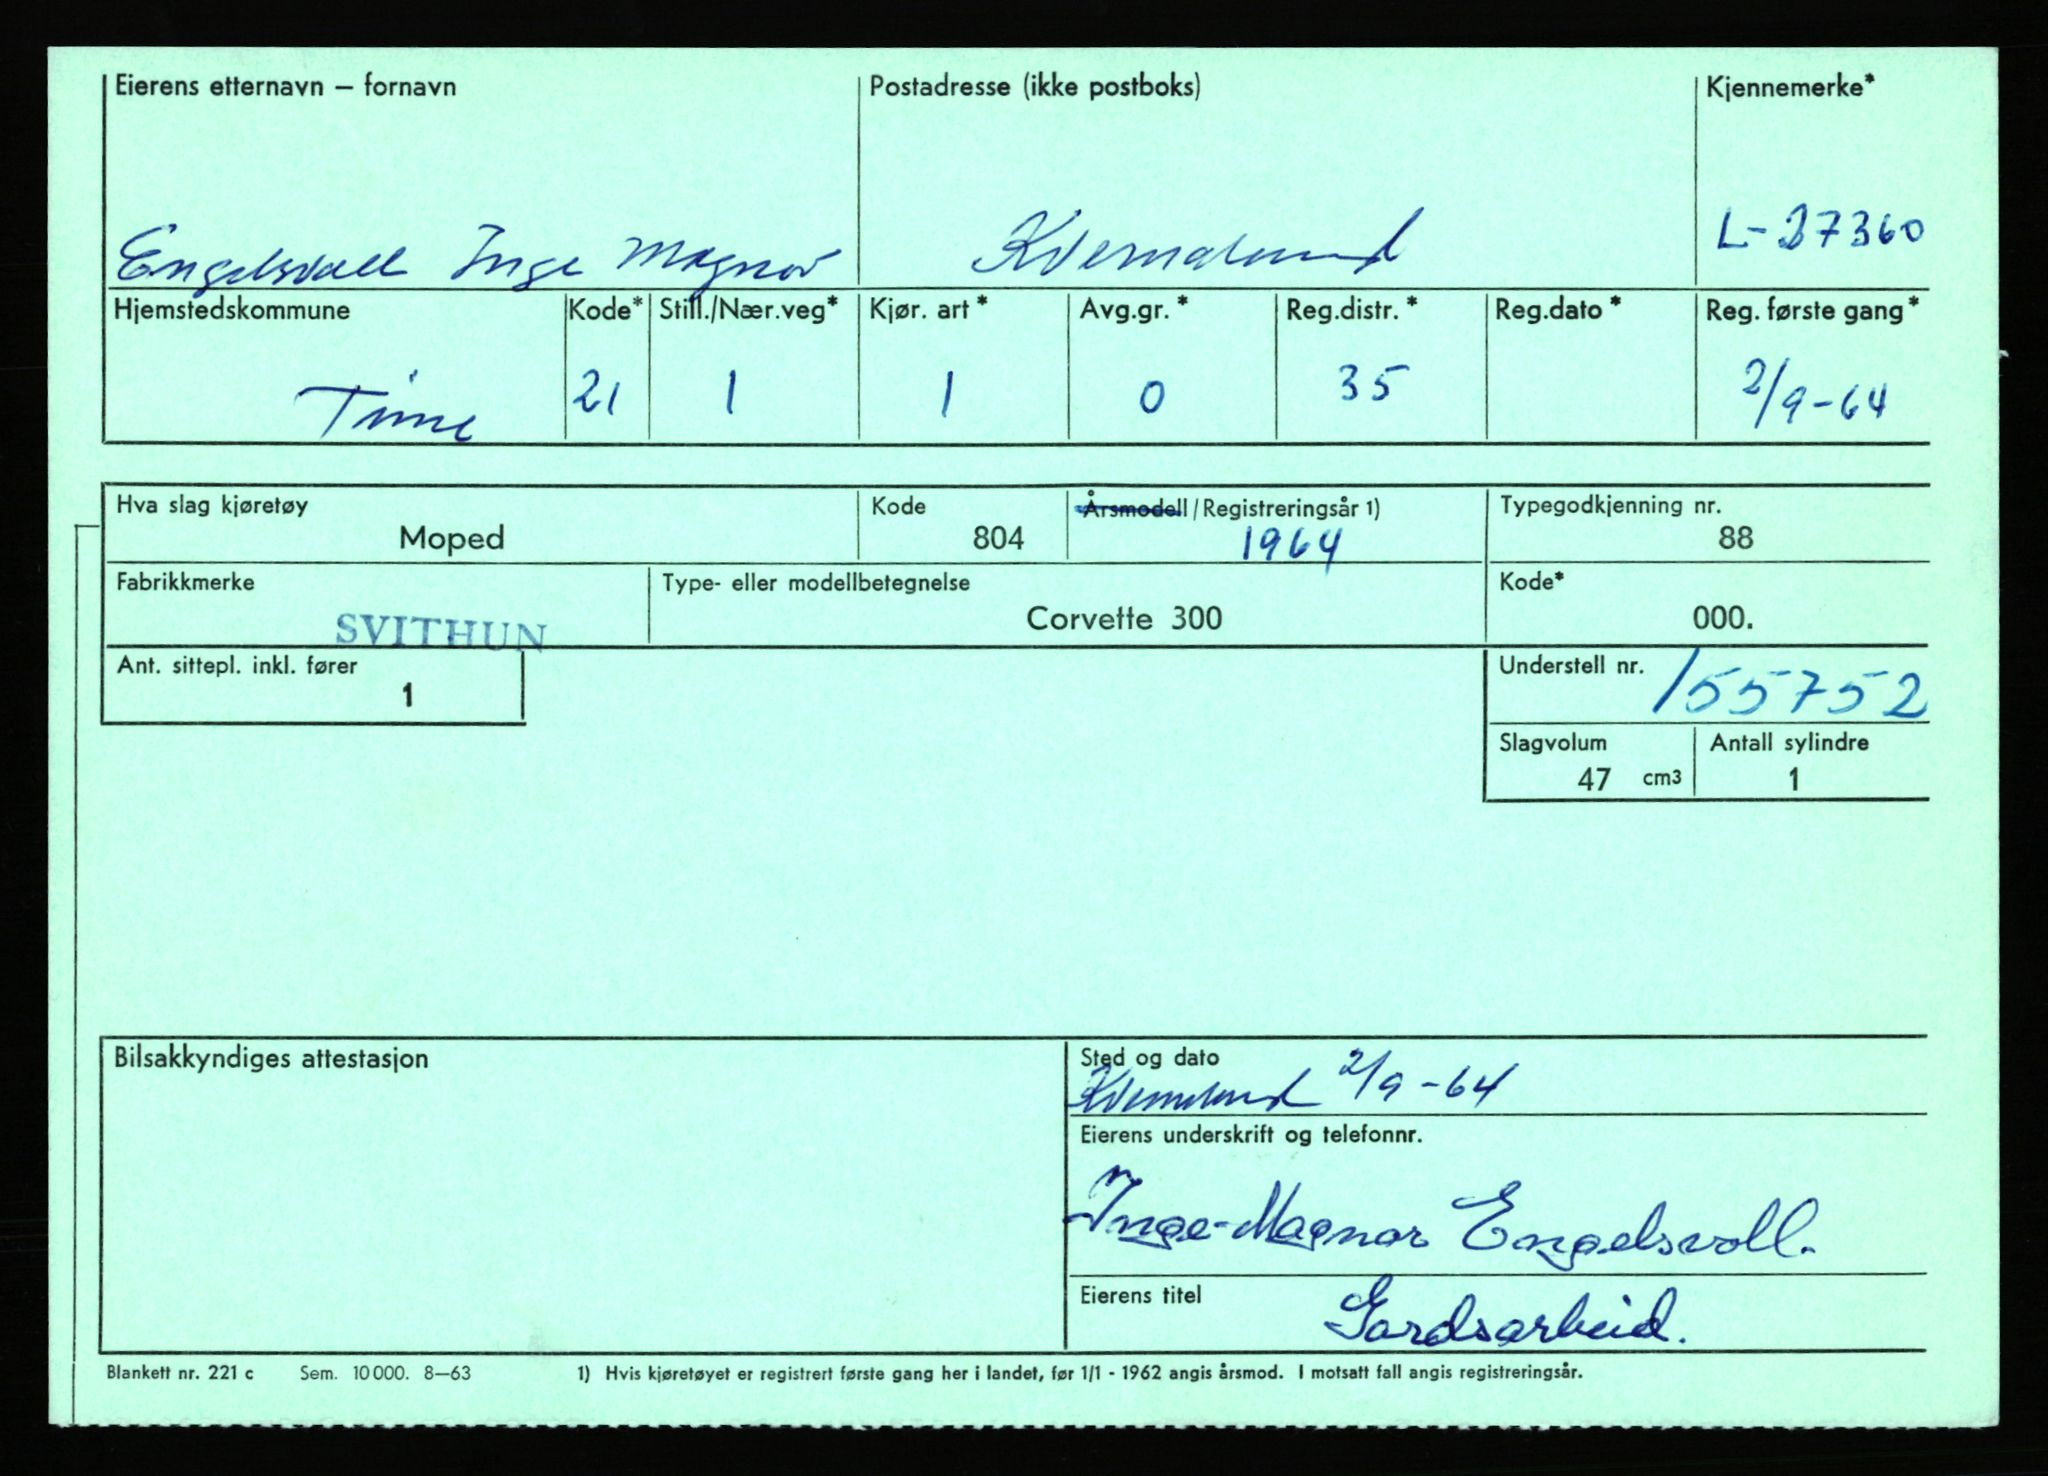 Eierens etternavn – fornavn Postadresse (ikke postboks) Kjennemerke*
Engelsvoll Inge Magnar Kvernaland L-27360
Hjemstedskommune Kode* Still./Nær.veg* Kjør. art* Avg.gr.* Reg.distr.* Reg.dato* Reg. første gang*
Time 21 1 1 0 35 2/9-64
Hva slag kjøretøy Kode Årsmodell/Registreringsår 1) Typegodkjenning nr.
Moped 804 1964 88
Fabrikkmerke Type- eller modellbetegnelse Kode*
SVITHUN Corvette 300 000.
Ant. sittepl. inkl. fører Understell nr.
1 155752
Slagvolum Antall sylindre
47 cm3 1
Bilsakkyndiges attestasjon Sted og dato
Kvernaland 2/9-64
Eierens underskrift og telefonnr.
Inge-Magnar Engelsvoll.
Eierens titel
Gardsarbeid.
Blankett nr. 221 c Sem. 10000. 8–63 1) Hvis kjøretøyet er registrert første gang her i landet, før 1/1 - 1962 angis årsmod. I motsatt fall angis registreringsår.